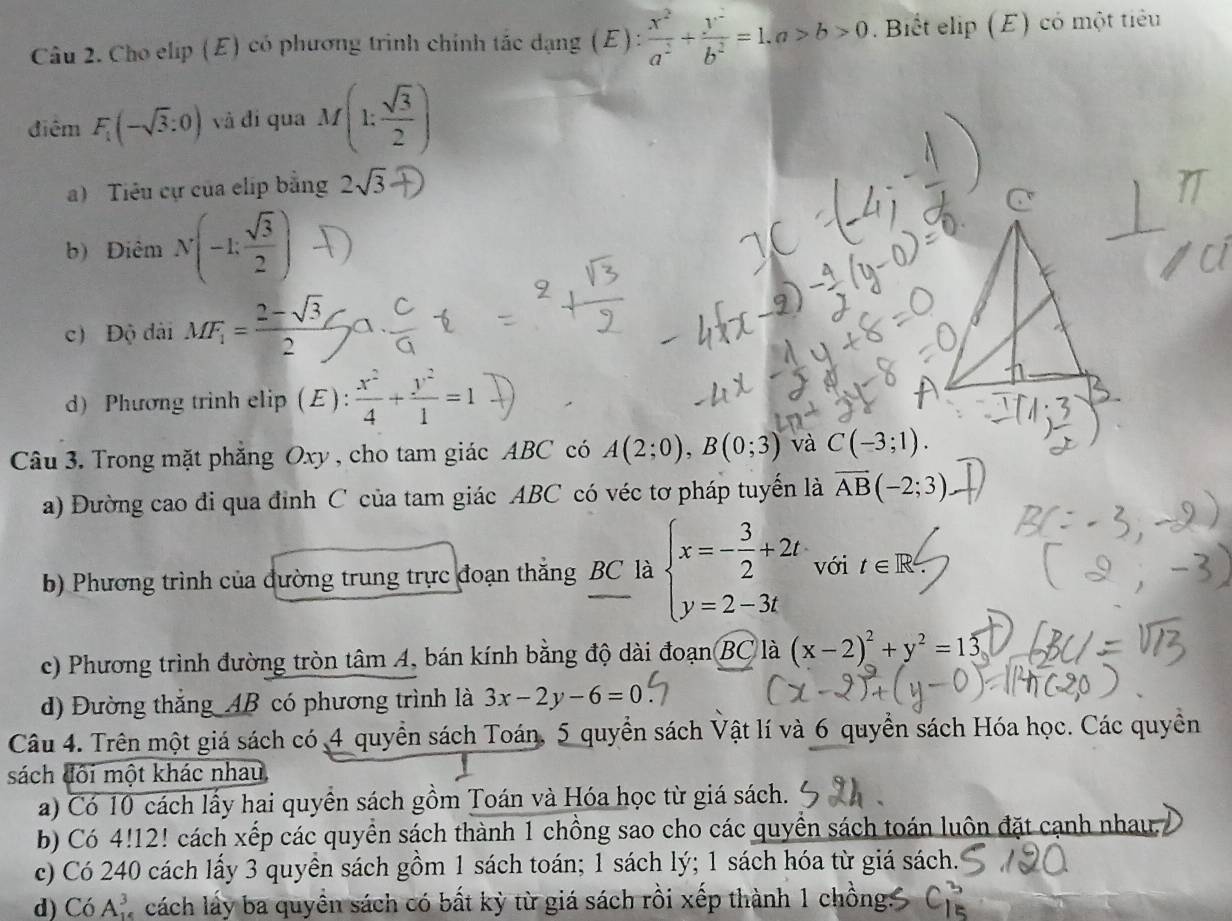 Câu 2. Cho elip (E) có phương trình chính tắc dạng (E): x²/a² + y²/b² = 1, a > b > 0. Biết elip (E) có một tiêu
điểm F₁(-√3;0) và đi qua M(1; √3/2)
a) Tiêu cự của elip bằng 2√3 Đ
b) Điểm N(-1; √3/2) Đ
c) Độ dài MF₁ = (2-√3)/2 S a. c/a = 2 + √3/2
d) Phương trình elip (E): x²/4 + y²/1 = 1 Đ
-4(x-2) - 1/2(y-0) = 0
C
A
B
h
I(1; 3/2)
Câu 3. Trong mặt phẳng Oxy, cho tam giác ABC có A(2;0), B(0;3) và C(-3;1).
a) Đường cao đi qua đỉnh C của tam giác ABC có véc tơ pháp tuyến là AB(-2;3) Đ
BC = -3, -2)
(2; -3)
b) Phương trình của đường trung trực đoạn thẳng BC là { x = -3/2 + 2t y = 2 - 3t với t ∈ ℝ. S
c) Phương trình đường tròn tâm A, bán kính bằng độ dài đoạn BC là (x-2)² + y² = 13. Đ |BC| = √13
d) Đường thẳng AB có phương trình là 3x - 2y - 6 = 0. S
Câu 4. Trên một giá sách có 4 quyển sách Toán, 5 quyển sách Vật lí và 6 quyển sách Hóa học. Các quyển
sách đôi một khác nhau.
a) Có 10 cách lấy hai quyển sách gồm Toán và Hóa học từ giá sách. S 24.
b) Có 4!12! cách xếp các quyển sách thành 1 chồng sao cho các quyển sách toán luôn đặt cạnh nhau. Đ
c) Có 240 cách lấy 3 quyển sách gồm 1 sách toán; 1 sách lý; 1 sách hóa từ giá sách. S 120
d) Có A³₁₅ cách lấy ba quyển sách có bất kỳ từ giá sách rồi xếp thành 1 chồng. S C³₁₅